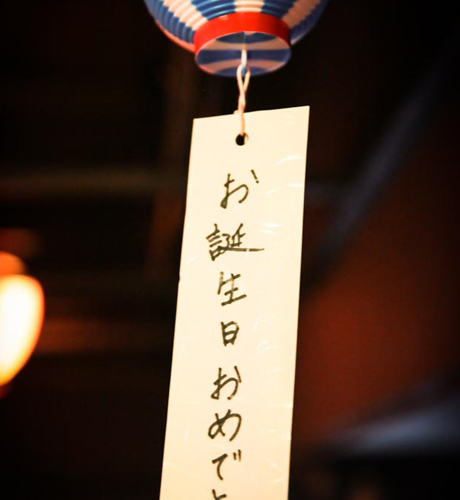 お誕生日おめで